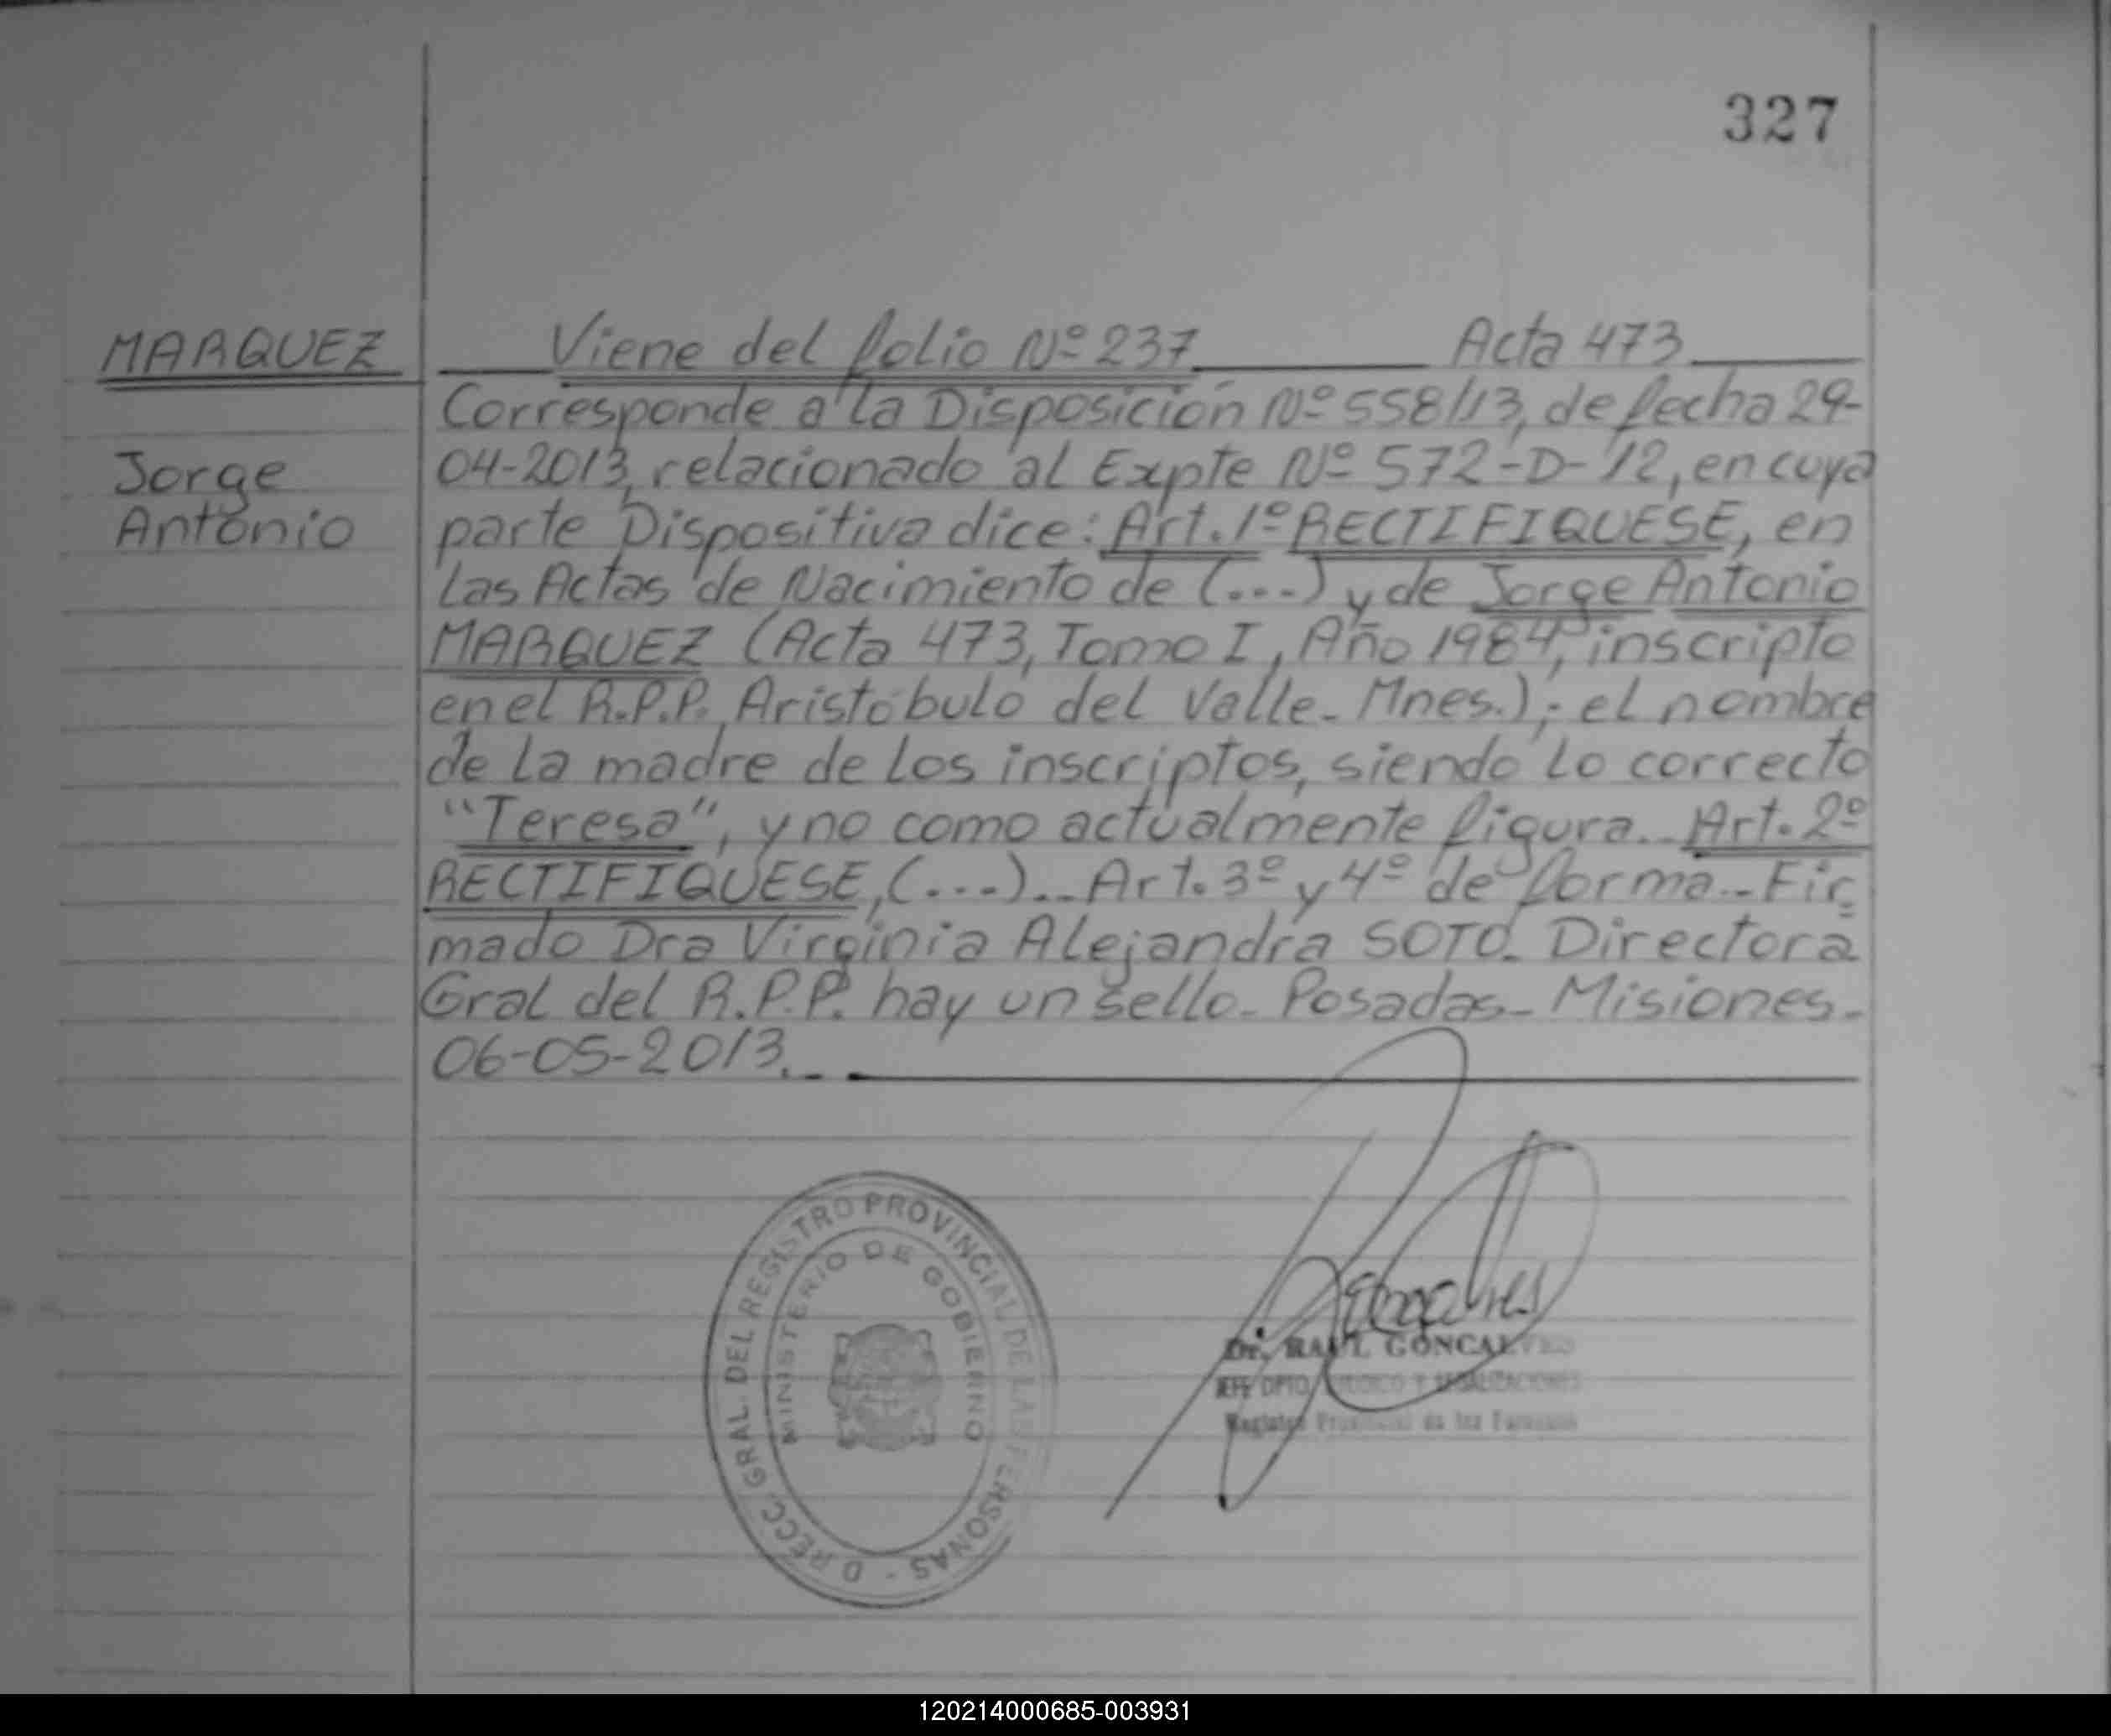 327
MARQUEZ
Jorge
Antonio
Viene del folio Nº 237 Acta 473
Corresponde a la Disposición Nº 558/13, de fecha 29-
04-2013, relacionado al Expte Nº 572-D-12, en cuya
parte Dispositiva dice: Art. 1º RECTIFIQUESE, en
las Actas de Nacimiento de (...) y de Jorge Antonio
MARQUEZ (Acta 473, Tomo I, Año 1984, inscripto
en el R.P.P. Aristóbulo del Valle - Mnes.); el nombre
de la madre de los inscriptos, siendo lo correcto
"Teresa", y no como actualmente figura.- Art. 2º
RECTIFIQUESE, (...).- Art. 3º y 4º de forma.- Fir=
mado Dra Virginia Alejandra SOTO. Directora
Gral del R.P.P. hay un sello - Posadas - Misiones -
06-05-2013.-
DIRECC. GRAL. DEL REGISTRO PROVINCIAL DE LAS PERSONAS -
MINISTERIO DE GOBIERNO
Goncalves
Dr. RAUL GONCALVES
JEFE DPTO. JURIDICO Y LEGALIZACIONES
Registro Provincial de las Personas
120214000685-003931